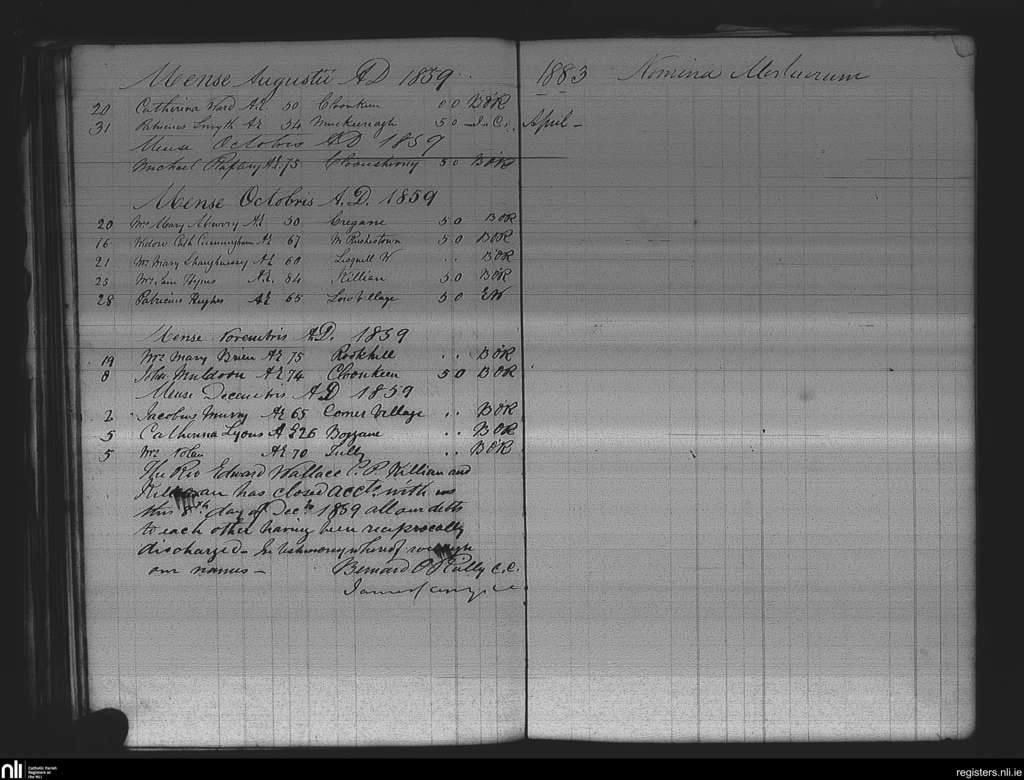 Mense Augustii AD 1859
20 Catherina Ward AE. 50 Cloonkeen 0 0 BOR
31 Patricius Smyth AE 54 Muckinagh 5 0 J. C.
Mense Octobris AD 1859
Michael Raftery AE 75 5 0 BOR
Mense Octobris A.D. 1859
20 Mrs Mary Murry AE 50 Cregane 5 0 BOR
16 Widow Cath Cunningham AE 67 5 0 BOR
21 Mrs Mary Shaughnessy AE 60 Lisgull W .. BOR
25 Mrs Hyns AE. 84 Killian 5 0 BOR
28 Patricius Hughes AE 65 Low Village 5 0 EW
Mense Novembris A.D. 1859
19 Mrs Mary Brien AE 75 Rookhill .. BOR
8 John Muldoon AE 74 Cloonkeen 5 0 BOR
Mense Decembris AD 1859
2 Jacobus Murray AE 65 Corner Village .. BOR
5 Catherina Lyons AE 26 Boggane .. BOR
5 Mrs Nolan AE 70 Tully .. BOR
The Rev Edward Wallace C.P. Killian and
has closed accts. with us
this 8th day of Decr. 1859 all our debts
to each other having been reciprocally
discharged - In testimony whereof we sign
our names - Bernard O'Reilly C.C.
1883 Nomina Mortuorum
April -
nli Catholic Parish
Registers at
the NLI
registers.nli.ie